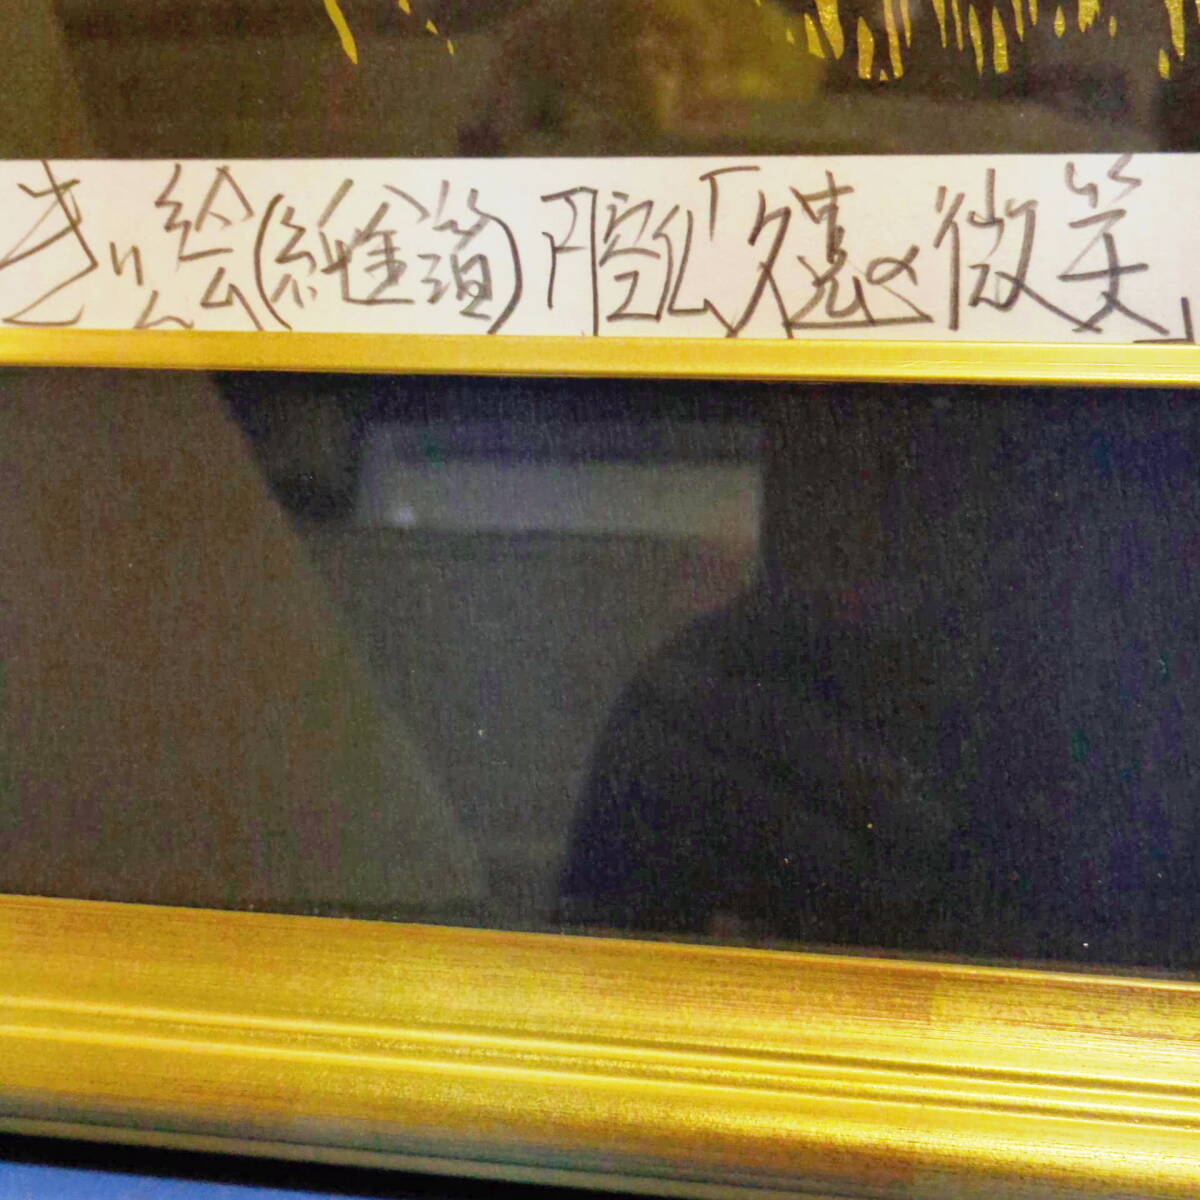 きりゑ(純金箔) 円空仏「久遠の微笑」